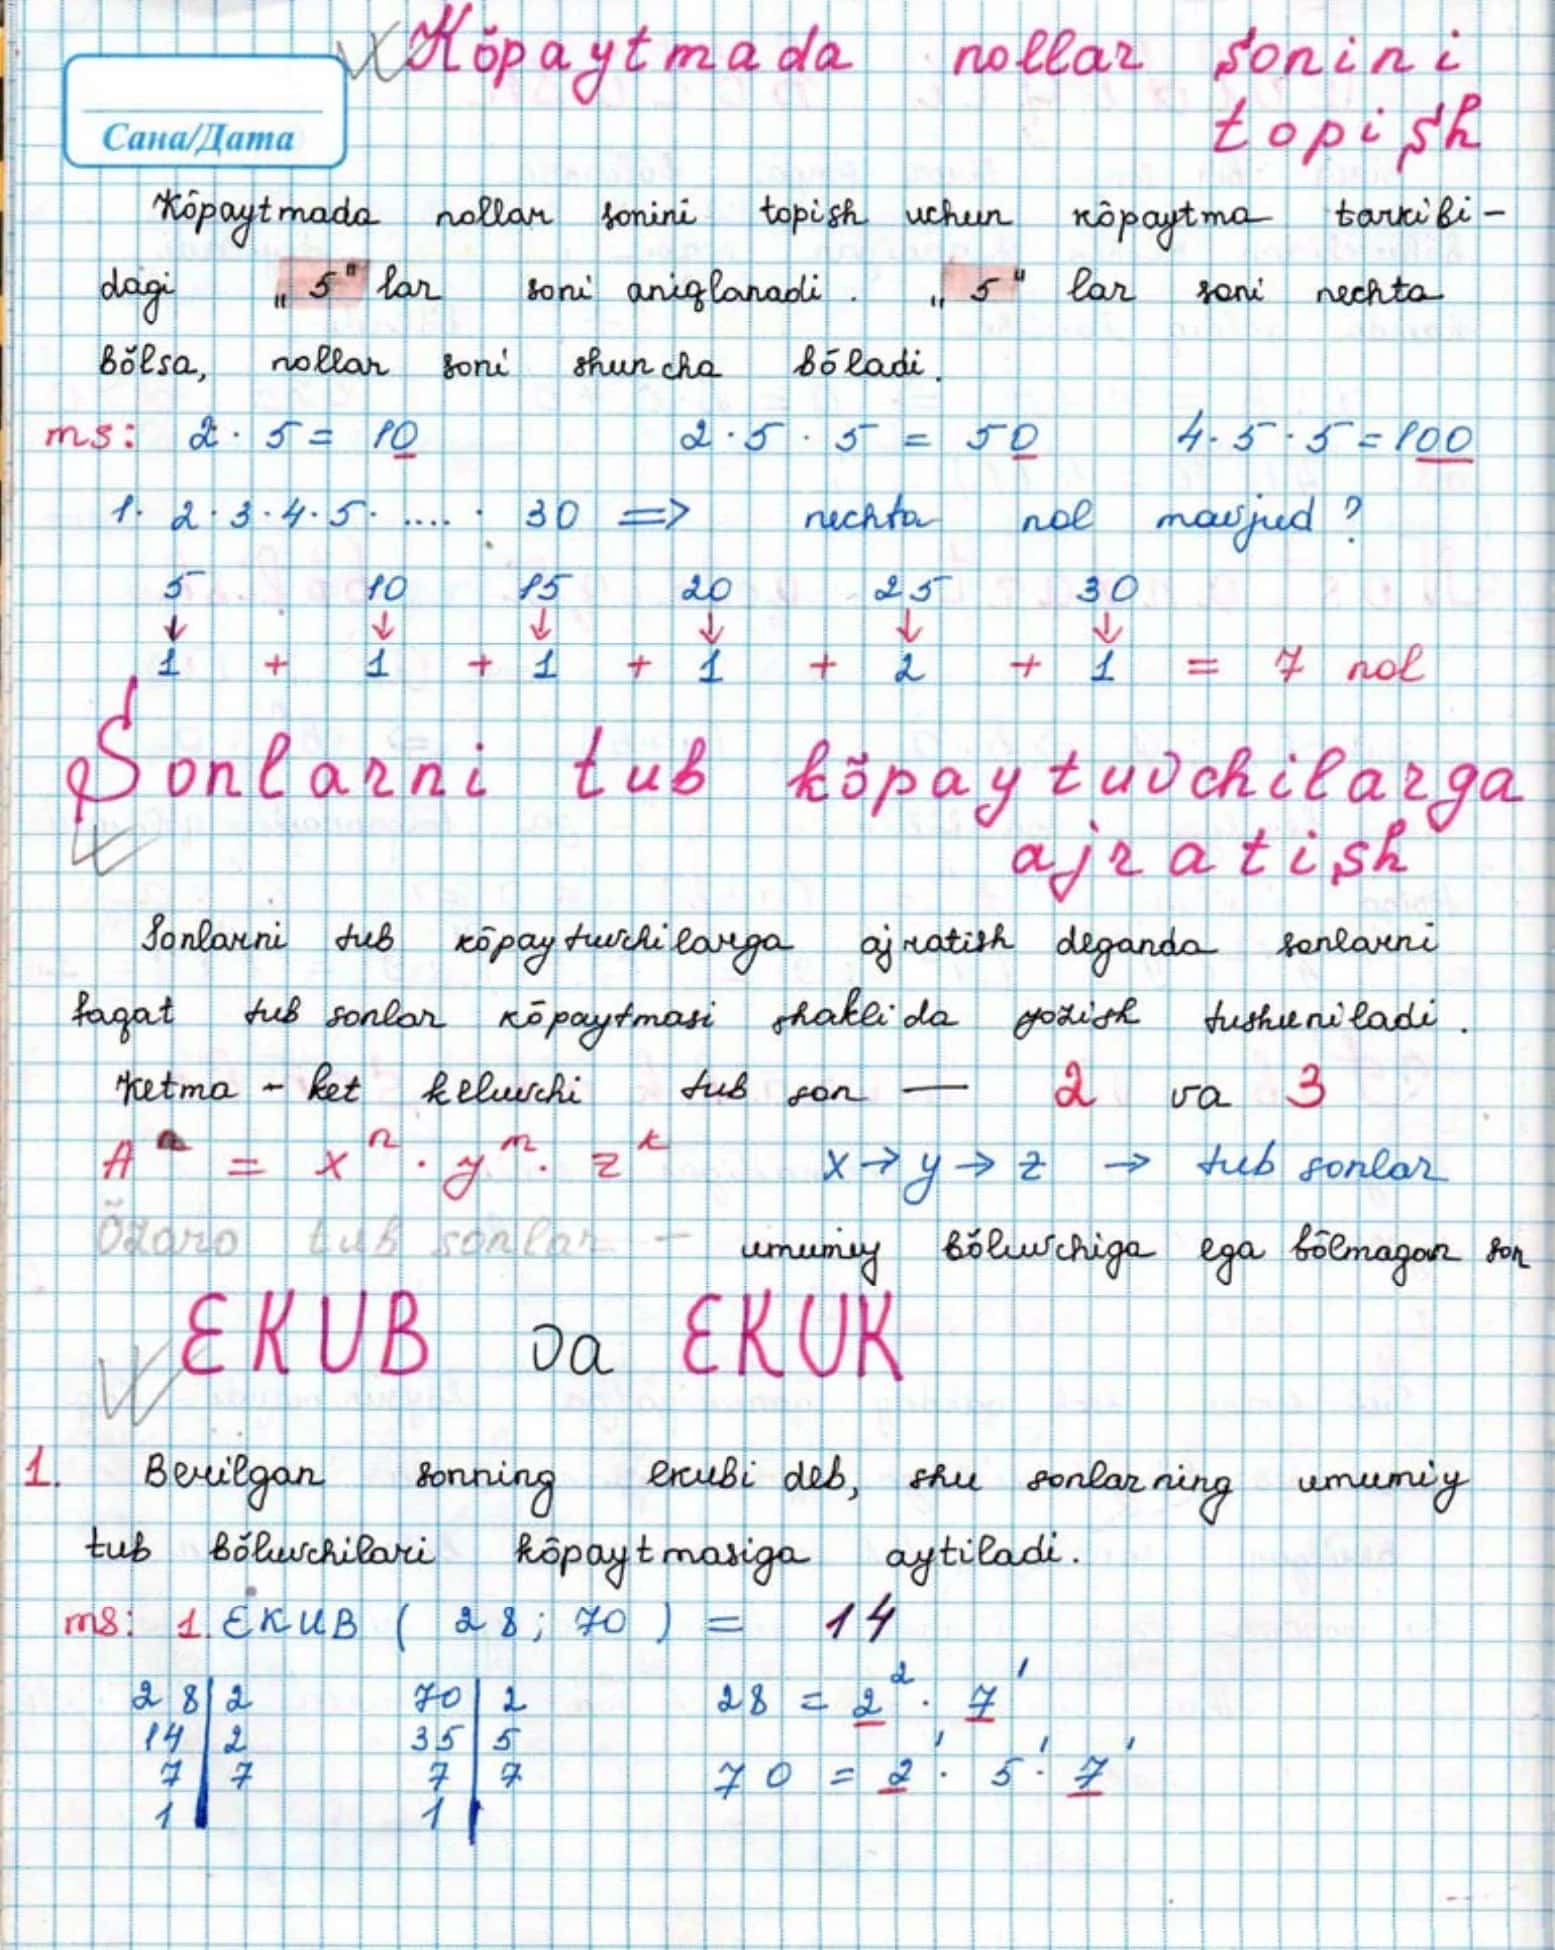 Kõpaytmada nollar sonini
topish
Сана/Дата
Kõpaytmada nollar sonini topish uchun kõpaytma tarkibi-
dagi „5" lar soni aniqlanadi. „5" lar soni nechta
bõlsa, nollar soni shuncha bõladi.
ms: 2 · 5 = 10 2 · 5 · 5 = 50 4 · 5 · 5 = 100
1 · 2 · 3 · 4 · 5 · .... · 30 => nechta nol mavjud?
5 10 15 20 25 30
↓ ↓ ↓ ↓ ↓ ↓
1 + 1 + 1 + 1 + 2 + 1 = 7 nol
Sonlarni tub kõpaytuvchilarga
ajratish
Sonlarni tub kõpaytuvchilarga ajratish deganda sonlarni
faqat tub sonlar kõpaytmasi shaklida yozish tushuniladi.
Ketma-ket keluvchi tub son — 2 va 3
A = xⁿ · yᵐ · zᵏ x → y → z → tub sonlar
Õzaro tub sonlar - umumiy bõluvchiga ega bõlmagan son
EKUB va EKUK
1. Berilgan sonning ekubi deb, shu sonlarning umumiy
tub bõluvchilari kõpaytmasiga aytiladi.
ms: 1. EKUB ( 28; 70 ) = 14
28 | 2 70 | 2 28 = 2² · 7¹
14 | 2 35 | 5
7 | 7 7 | 7 70 = 2¹ · 5¹ · 7¹
1 | 1 |